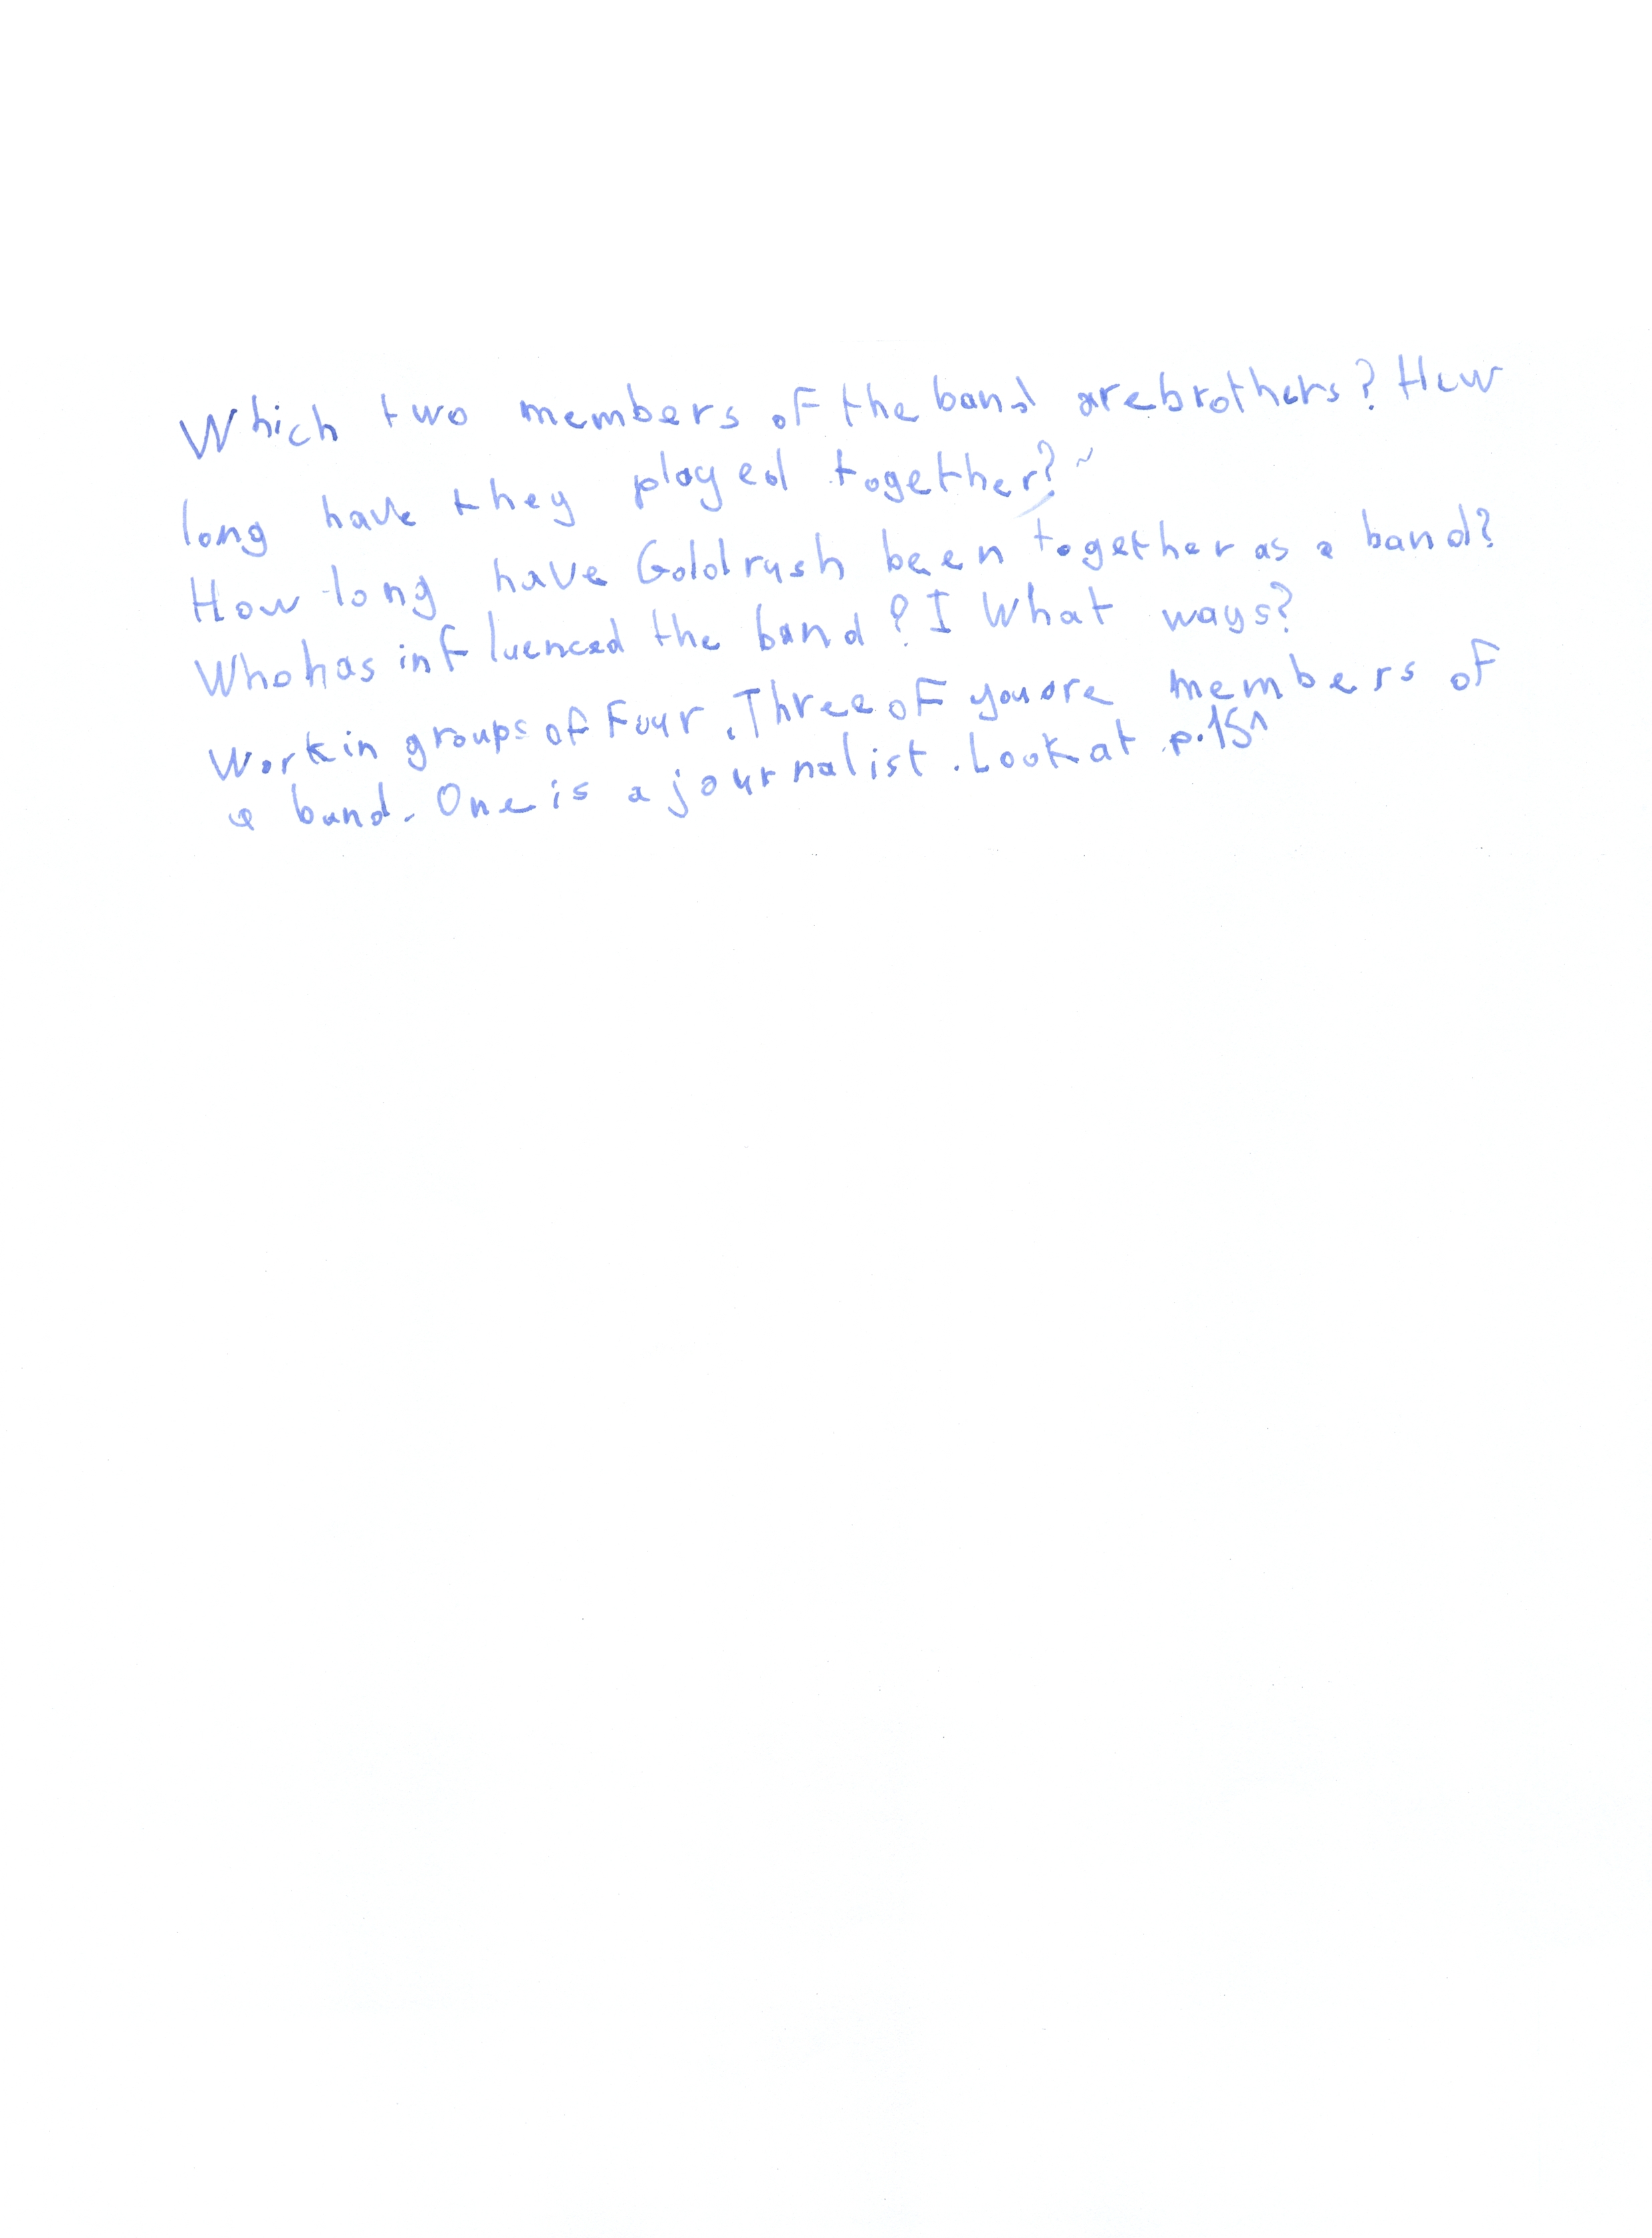 Which two members of the band are brothers? How
long have they played together?
How long have Goldrush been together as a band?
Who has influenced the band? I What ways?
Work in groups of Four. Three of you are members of
a band. One is a journalist. Look at p.151